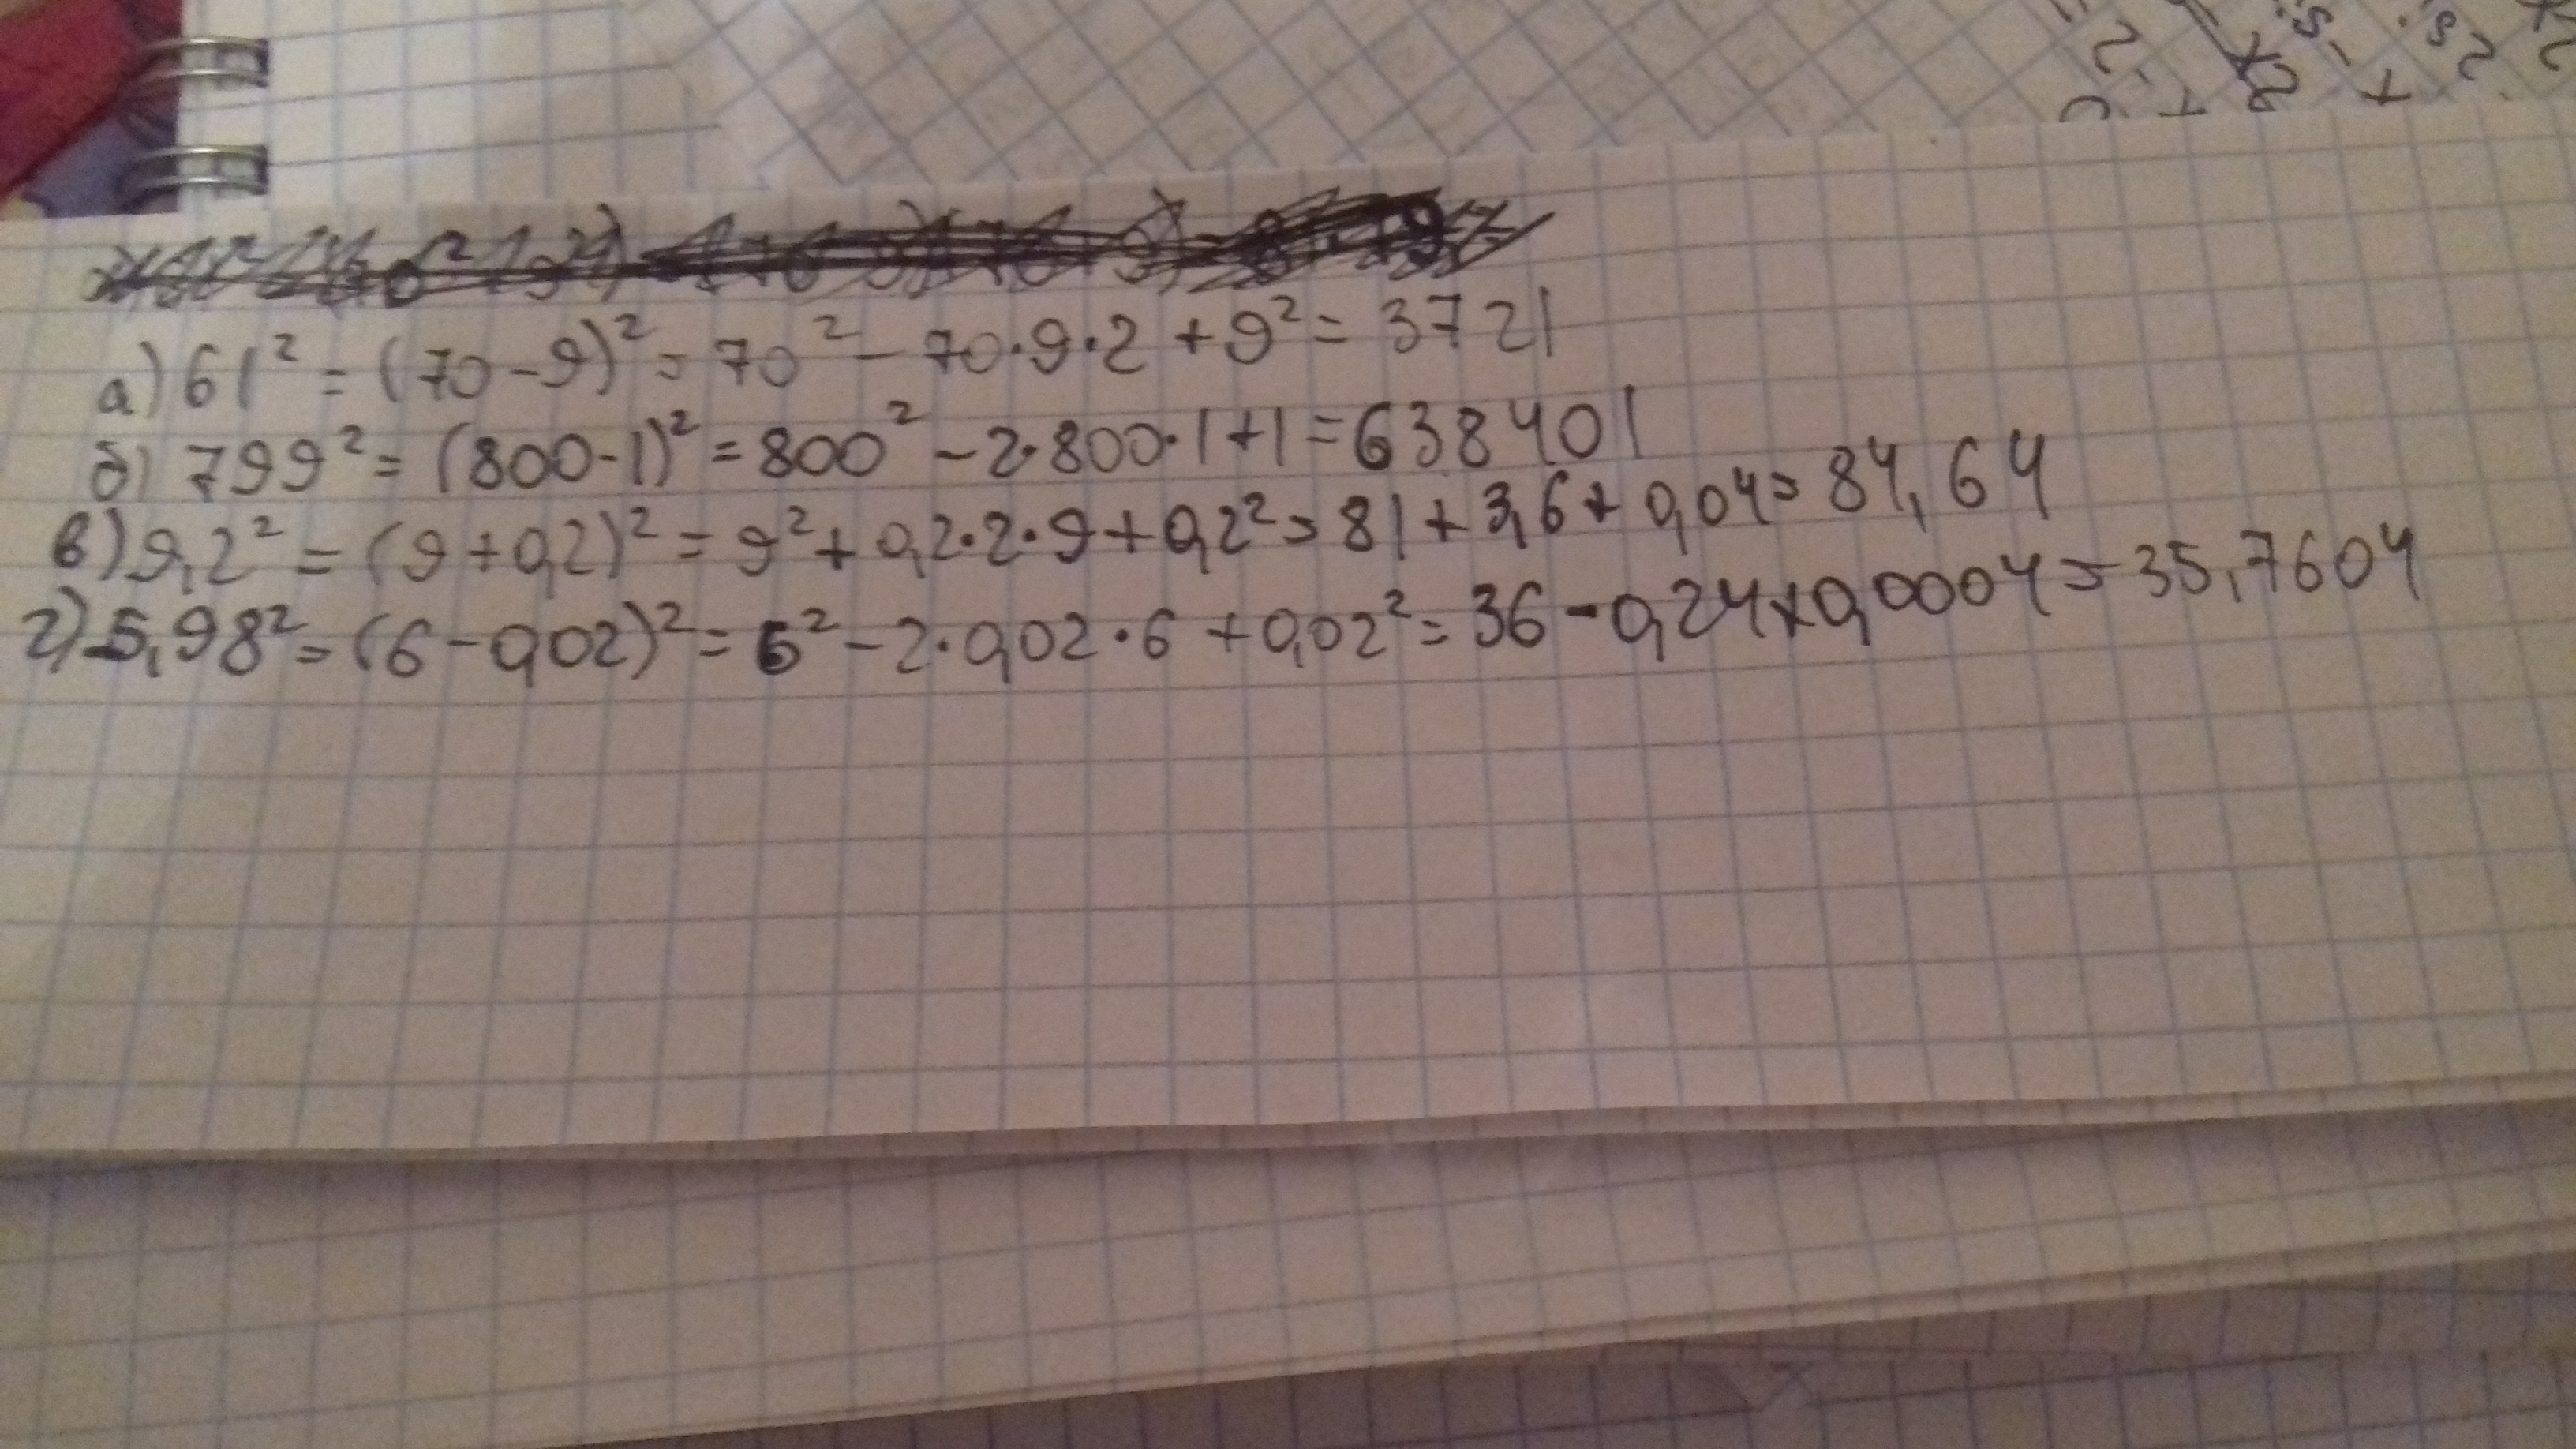 а) 61² = (70-9)² = 70² - 70·9·2 + 9² = 3721
б) 799² = (800-1)² = 800² - 2·800·1+1 = 638401
в) 9,2² = (9+0,2)² = 9² + 0,2·2·9 + 0,2² = 81 + 3,6 + 0,04 = 84,64
г) 5,98² = (6-0,02)² = 6² - 2·0,02·6 + 0,02² = 36 - 0,24 + 0,0004 = 35,7604